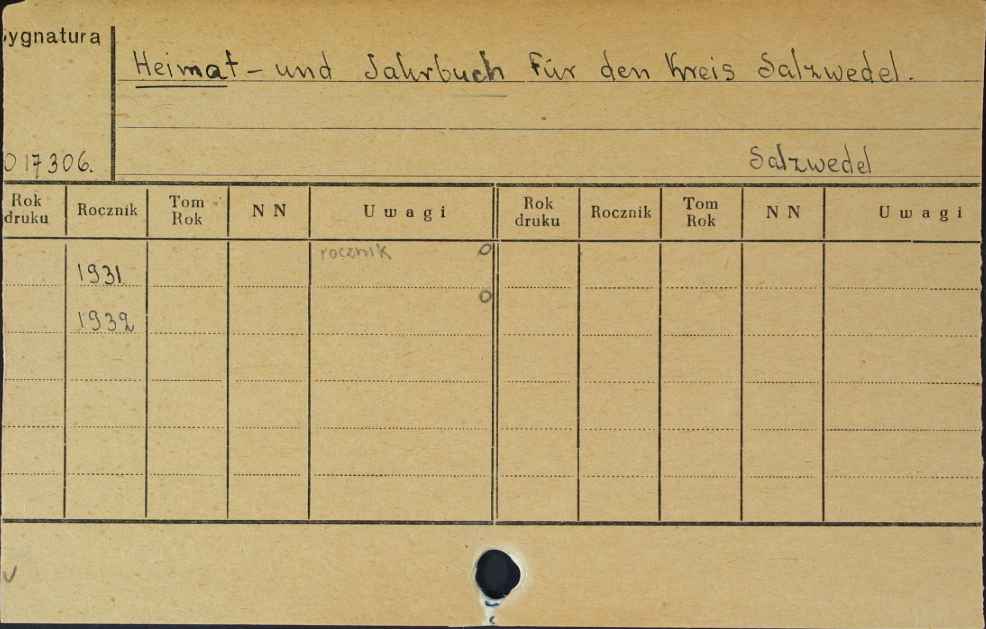 Sygnatura
Heimat- und Jahrbuch Für den Kreis Salzwedel.
017306.
Salzwedel
Rok druku Rocznik Tom Rok NN Uwagi Rok druku Rocznik Tom Rok NN Uwagi
rocznik
1931
1932